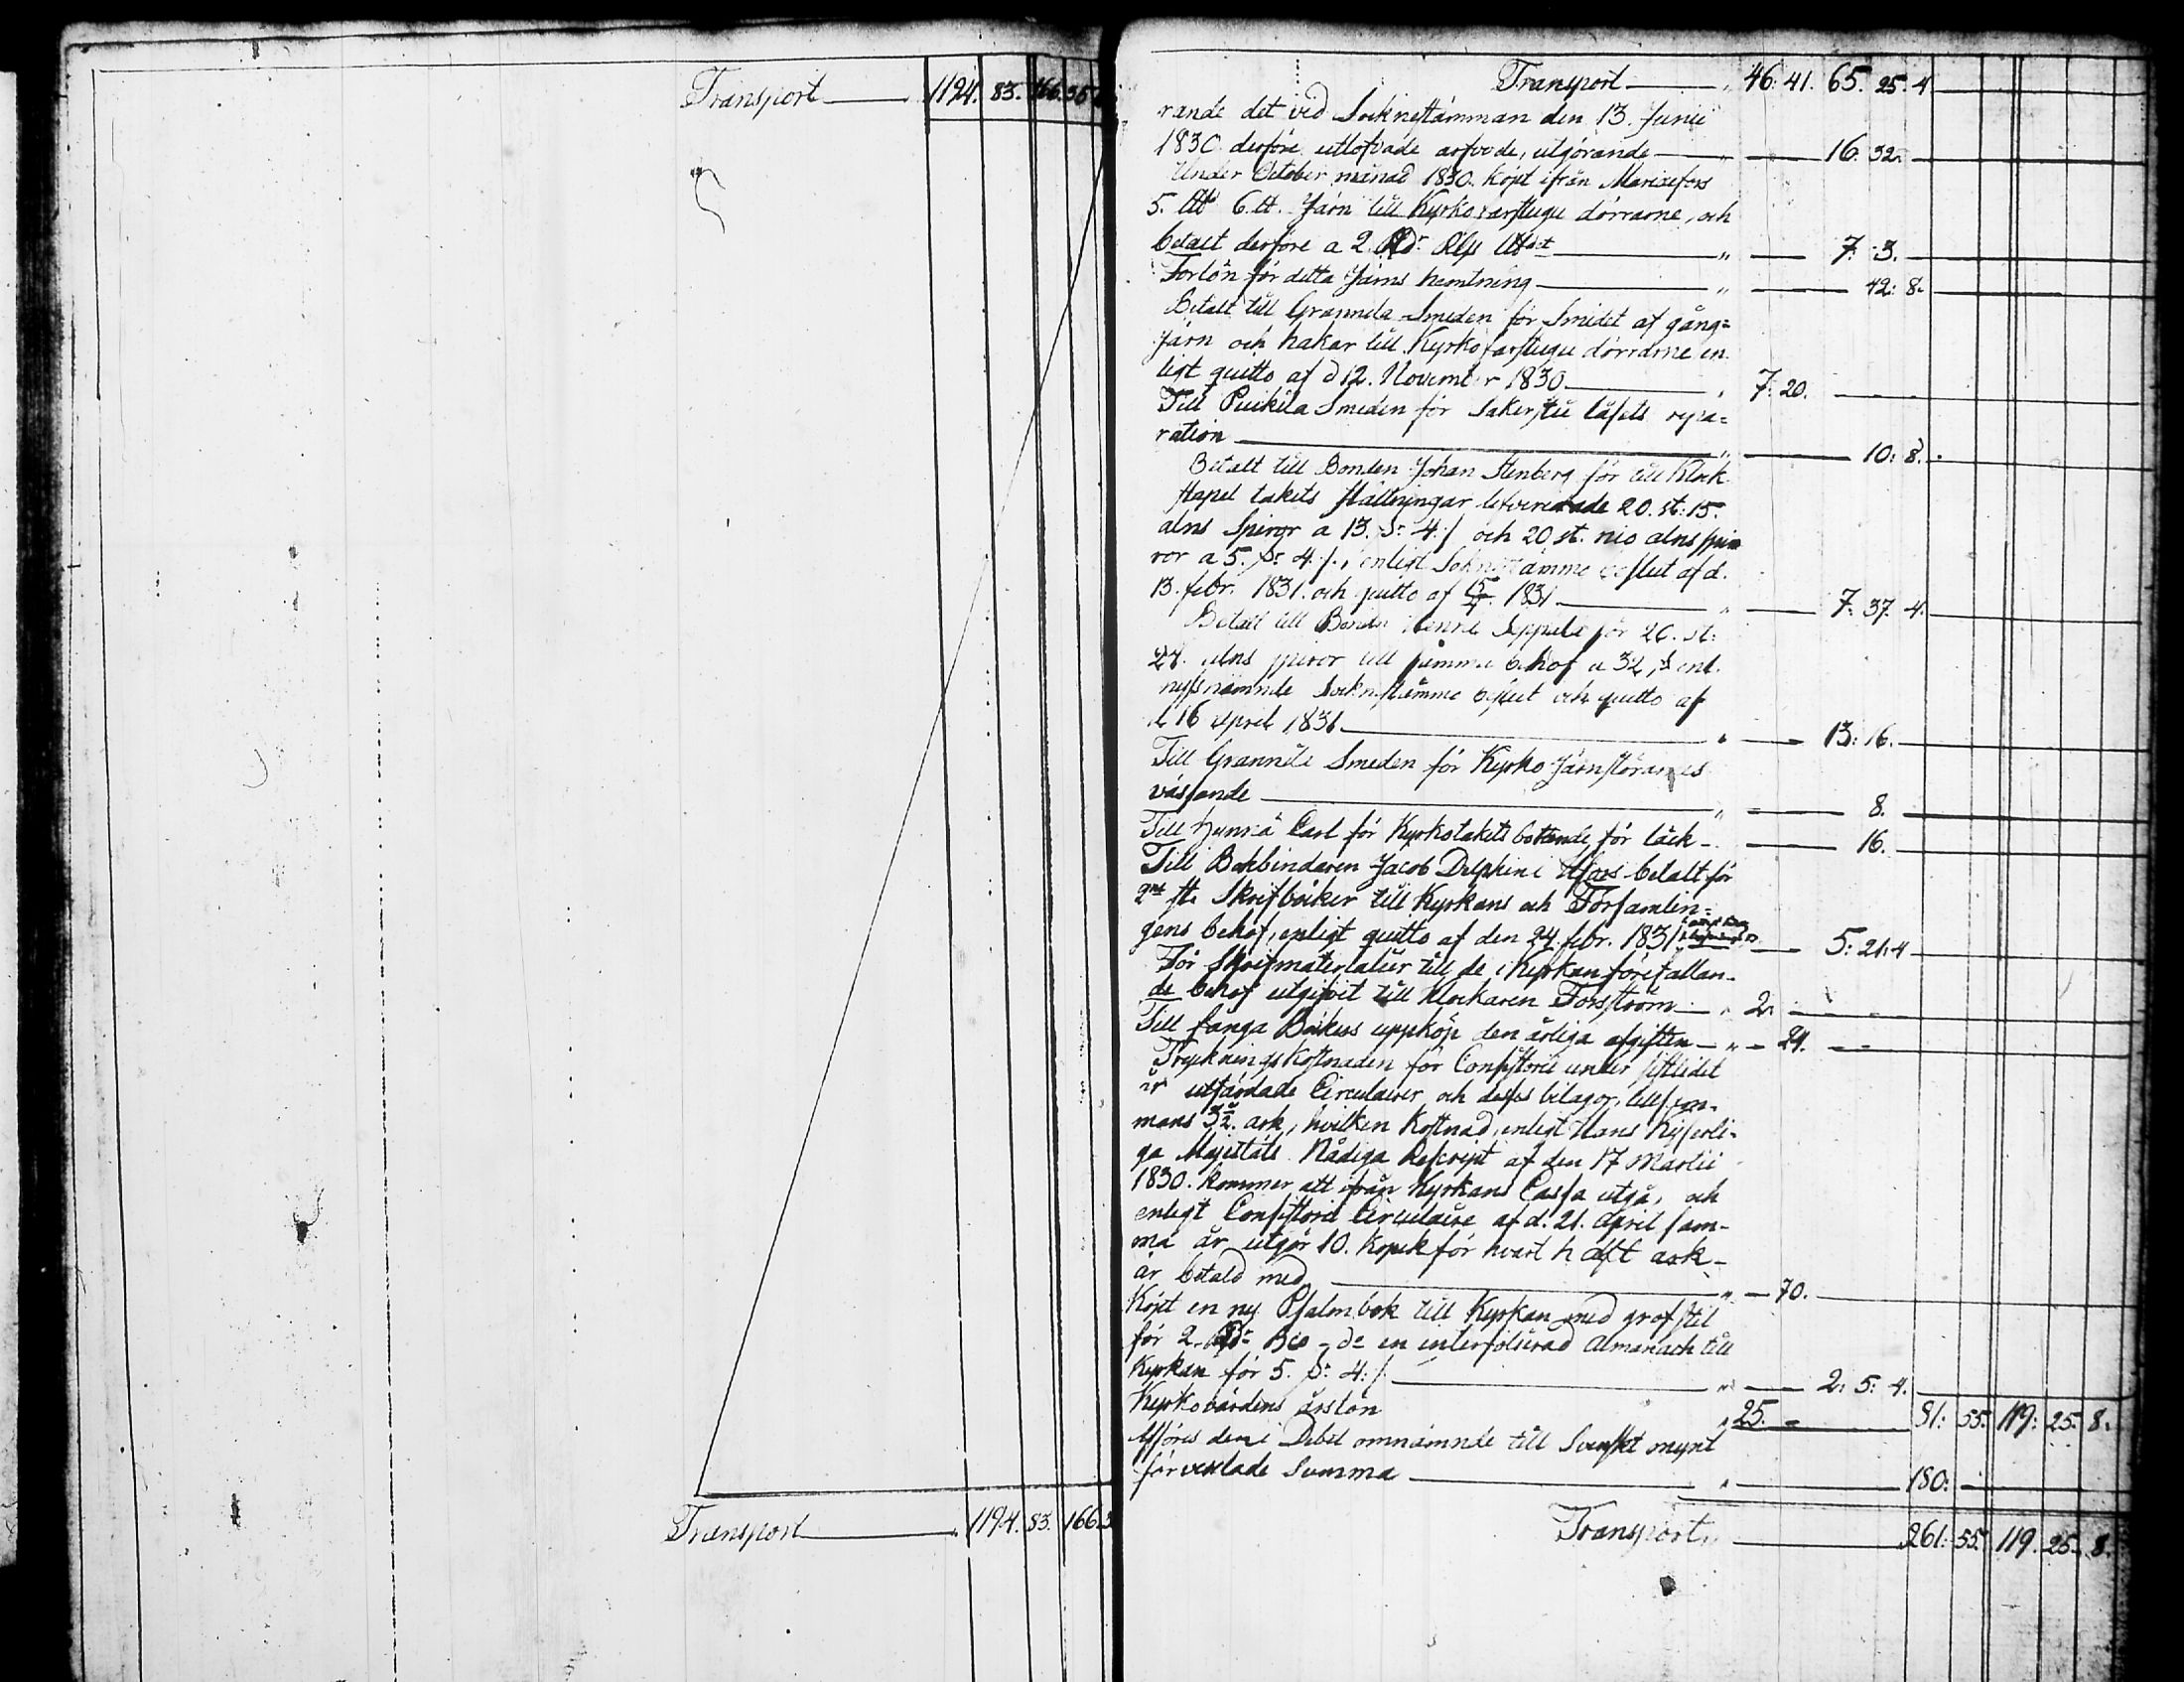 Transport 1194. 83. 166. 36
Transport 1194. 83. 166. 3
Transport 46. 41. 65. 25. 4
rande det vid Socknestämman den 13. Junii
1830 derföre utlofvade arfvode, utgörande 16. 32.
Under October månad 1830. köpt ifrån Mariæfors
5. 6. Järn till Kyrko farstugu dörrarne, och
betalt derföre a 2. 7. 3.
Forlön för detta Järns hemtning 42: 8.
Betalt till Grannila Smeden för Smidet af gång=
järn och hakar till Kyrko farstugu dörrarne en
ligt quitto af d 12. November 1830 7: 20.
Till Puikila Smeden för Sakerstie låsets repa=
ration 10: 8.
Betalt till Bonden Johan Stenberg för till Klock
stapel takets ställningar leverade 20. st. 15.
alns Spiror a 13. s. 4. och 20 st. nio alns spi
ror a 5. s. 4., enligt Soknestämme beslut af d.
13. febr. 1831. och quitto af 1831 7. 37. 4.
Betalt till Bonden Henric Seppälä för 26. st:
alns spiror till samma behof a 32, s enl.
nyssnämnde Socknestämme beslut och quitto af
d. 16 April 1831 13: 16.
Till Grannila Smeden för Kyrko Järnstörarnes
vässande 8.
Till Carl för Kyrkotakets bottande för läck 16.
Till Bokbindaren Jacob Delphin i Hfors betalt för
2ne st. Skrifböcker till Kyrkans och Församlin=
gens behof, enligt quitto af den 24. febr. 1831 5: 21: 4
För Skrifmaterialier till de i Kyrkan förefallan
de behof utgifvit till Klockaren Forsström 2.
Till fånga Bäckers uppköp den årliga afgiften 24.
Tryckningskostnaden för Consistorii under sistledit
år utfärdade Circulairer och dess bilagor, till sam=
mans 3½ ark, hvilken kostnad, enligt Hans Kejserli=
ga Majestäts Nådiga Rescript af den 17 Martii
1830. kommer att ifrån Kyrkans Cassa utgå, och
enligt Consistorii Circulaire af d. 21. April sam=
ma år utgör 10. Kopek för hvart hälft ark
är betald med 70.
Köpt en ny Psalmbok till Kyrkan med grof stil
för 2. Rd: Bco do en interfolierad Almanach till
Kyrkan för 5. s: 4. 2: 5: 4.
Kyrkovärdens årslön 25. 81: 55. 119: 25. 8.
Afföres den i Debet omnämnde till Svenskt mynt
förvexlade Summa 180:
Transport 261: 55. 119. 25. 8.